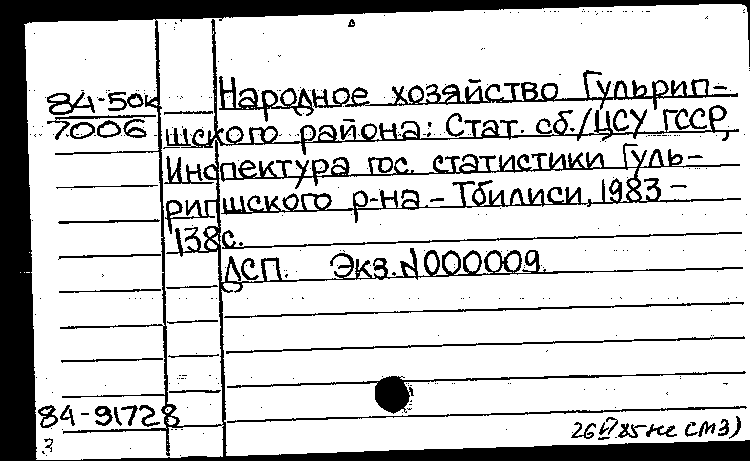 84-50к
7006
Народное хозяйство Гульрип-
шского района: Стат. сб./ЦСУ ГССР,
Инспектура гос. статистики Гуль-
рипшского р-на.- Тбилиси, 1983 -
138с.
ДСП. Экз. N000009.
84-91728
3
26 VI 85